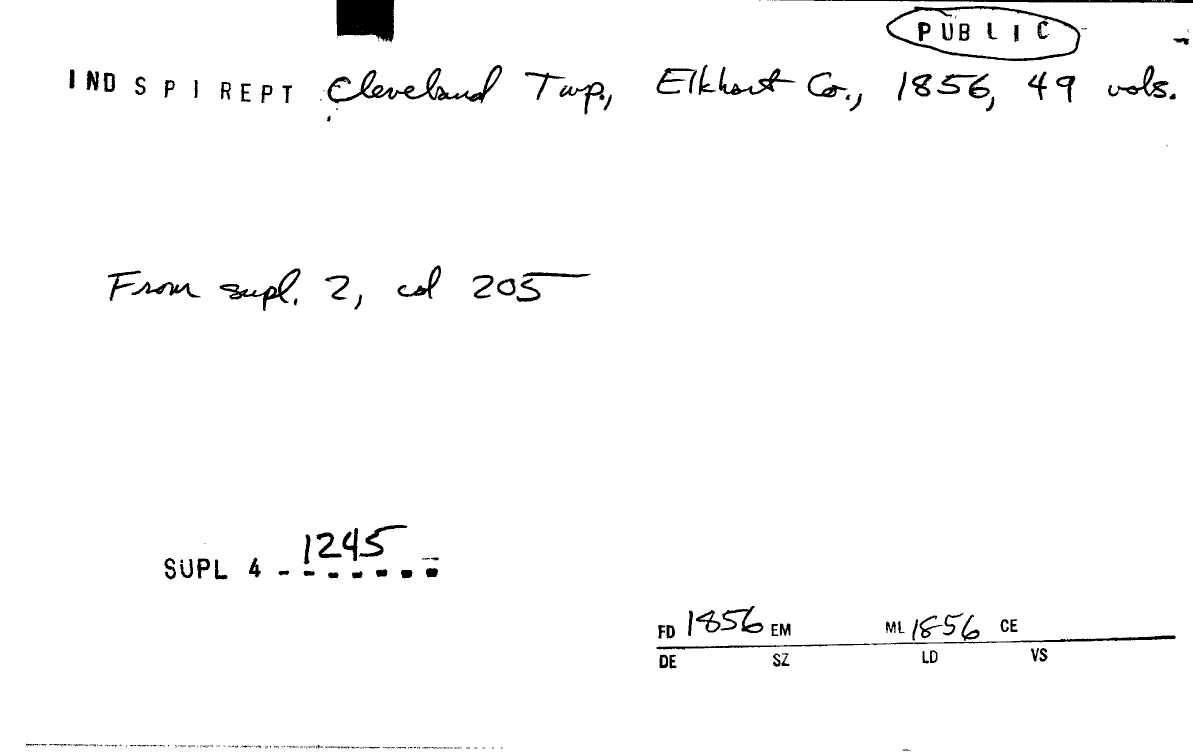 PUBLIC
INDSPIREPT Cleveland Twp., Elkhart Co., 1856, 49 vols.
From supl. 2, col 205
SUPL 4 - 1245
FD 1856 EM ML 1856 CE
DE SZ LD VS